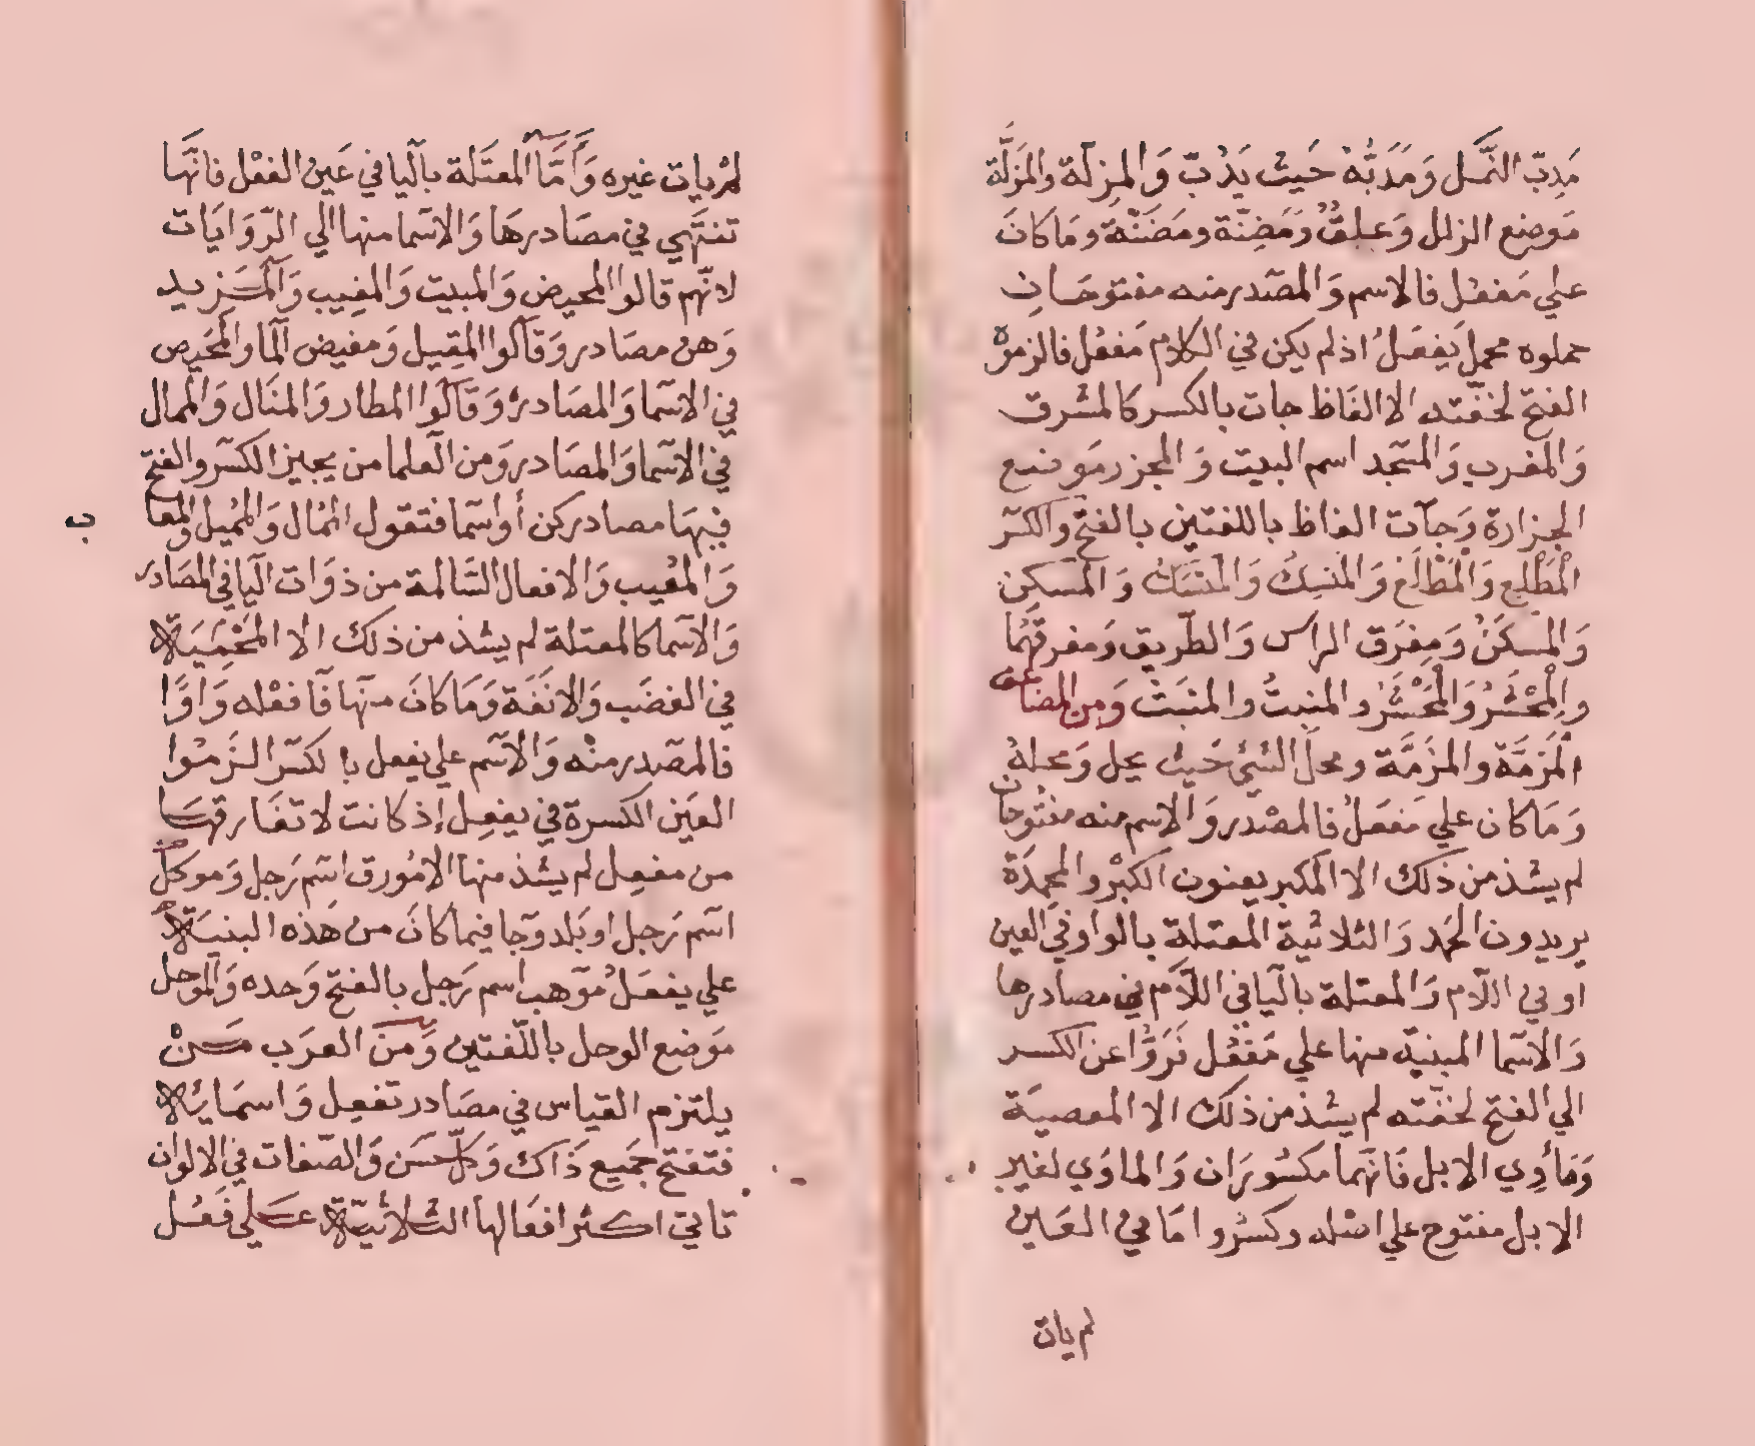 مَدِبّ النَّمل وَمَدَبُّهُ حَيث يَدُبّ وَالمزِلّة والمَزَلَّة
مَوضع الزلل وَعِلقٌ وَمَضِنّة ومَضَنّة ومَا كانَ
علي مَفعُل فالاسم وَالمصَدر منه مفتوحَان
حملوه محمل يَفعَلُ اذ لم يكن في الكلام مَفعُل فالزموه
الفتح لخفّته الا الفَاظ جات بالكسر كالمشرق
وَالمَغرب وَالمسَجد اسم البيت وَالمجزر مَوضع
الجزارة وَجاّت الفاظ باللغتين بالفتح والكسر
المَطْلِع وَالمَطْلَع وَالمنسِكُ وَالمنسَكُ وَالمَسكن
وَالمَسكَنُ وَمفِرَق الراس وَالطّريق وَمفرقَهُما
والمْحْشِرُ وَالمْحَشَرُ والمنبِتُ والمنبَتُ وَمِن المضاعف
المَزِمَّة والمَزَمَّة ومحلّ الشيُ حَيث يحل وَمحلهُ
وَمَا كان علي مَفعَلُ فالمصْدر وَالاسم منه مفتوحان
لم يشذ من ذلك الا المكبر يعنون الكبْر والمحمِدَة
يريدون الحمَد وَالثلاثية المعتلة بالواو في العين
او في اللّام وَالمعتلة باليا في اللّام في مصادرها
وَالاسَما المبنيّة منها علي مَفْعُل نَرَوُّا عن الكسر
الي الفتح لخفّته لم يشذ من ذلك الا المعصيَة
وَمَأوِي الابل فَانهَما مكسُورَان وَالماوَي لغير
الابل مفتوح علي اصْله وكسرُوا مَا في العَين
لم يات
لمْ يات غيره وَأمَّا المعتَلة بالَيا في عَين الفعْل فانهَّا
تنتهَي في مصَادرهَا وَالاسَما منها الي الرّوَايَات
لانّهم قالوا المحيض وَالمبيت وَالمغيب وَالمَزيد
وَهن مصَادر وَقاَلوا المِقِيل وَمغيض الَما والمَحيص
في الاسَما وَالمصَادر وَقَالَوا المطار وَالمنَال وَالممال
في الاسَما وَالمصَادر وَمن العلما من يجيز الكسَر والفتح
فيهَا مصادر كن أو اسَما فتقول المُمال وَالمُميل والمعا
ب
وَالمعُيب وَالافعال السَّالمة من ذوَات اليَا في المصَادر
وَالاسَما كالمعتلة لم يشذ من ذلك الا المَحْمِيَة
في الغضَب وَالانَفَة وَمَا كانَ منهَا فَا فعْله وَاوًا
فالمصَدر منْه وَالاسَم علي يفعل بالكسَر الزَموا
العَين الكسرة في يفعِل إذ كانت لا تفَارقهَا
من مفعِل لم يشذ منها الا مُورق اسَم رَجل وَموكل
اسَم رَجل او بَلد وجَا فيما كانَ من هَذه البنيَة
علي يفعَلُ مُوَهب اسم رَجل بالفتح وَحده وَالمَوحل
مَوضع الوحل باللّغتين وَمنَ العرَب مَنْ
يلتزم القياس في مصَادر تفعِل وَاسمَائه
فتفتح جَميع ذَاك وَكلّ حسَن وَالصّفات في الالوان
تاتي اكثر افعَالها الثلاثيّة عَلي فَعُل